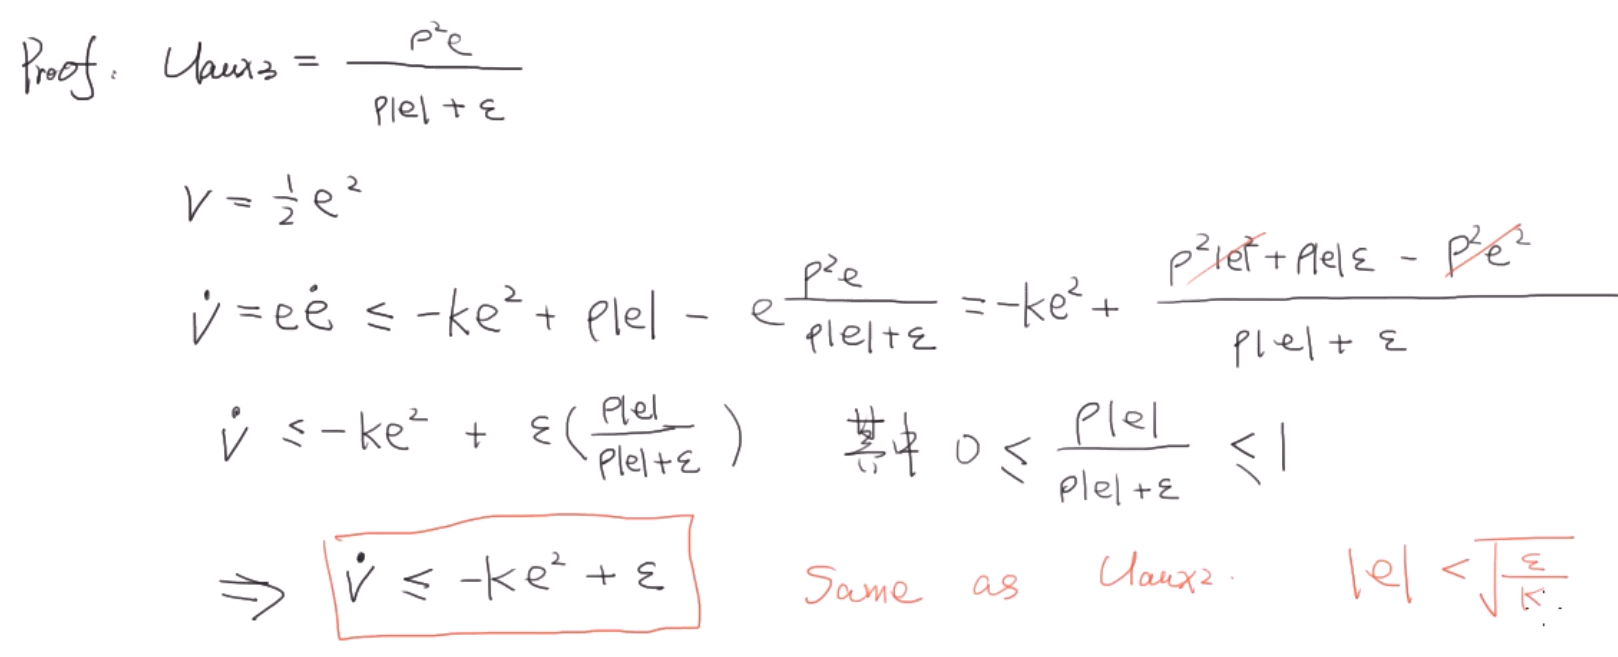 Proof: Uaux3 = ρ²e / (ρ|e| + ε)
V = 1/2 e²
V̇ = eė ≤ -ke² + ρ|e| - e ρ²e / (ρ|e|+ε) = -ke² + (ρ²|e|² + ρ|e|ε - ρ²e²) / (ρ|e| + ε)
V̇ ≤ -ke² + ε(ρ|e| / (ρ|e|+ε)) 其中 0 ≤ ρ|e| / (ρ|e|+ε) ≤ 1
⇒ V̇ ≤ -ke² + ε Same as Uaux2. |e| < √(ε/K)